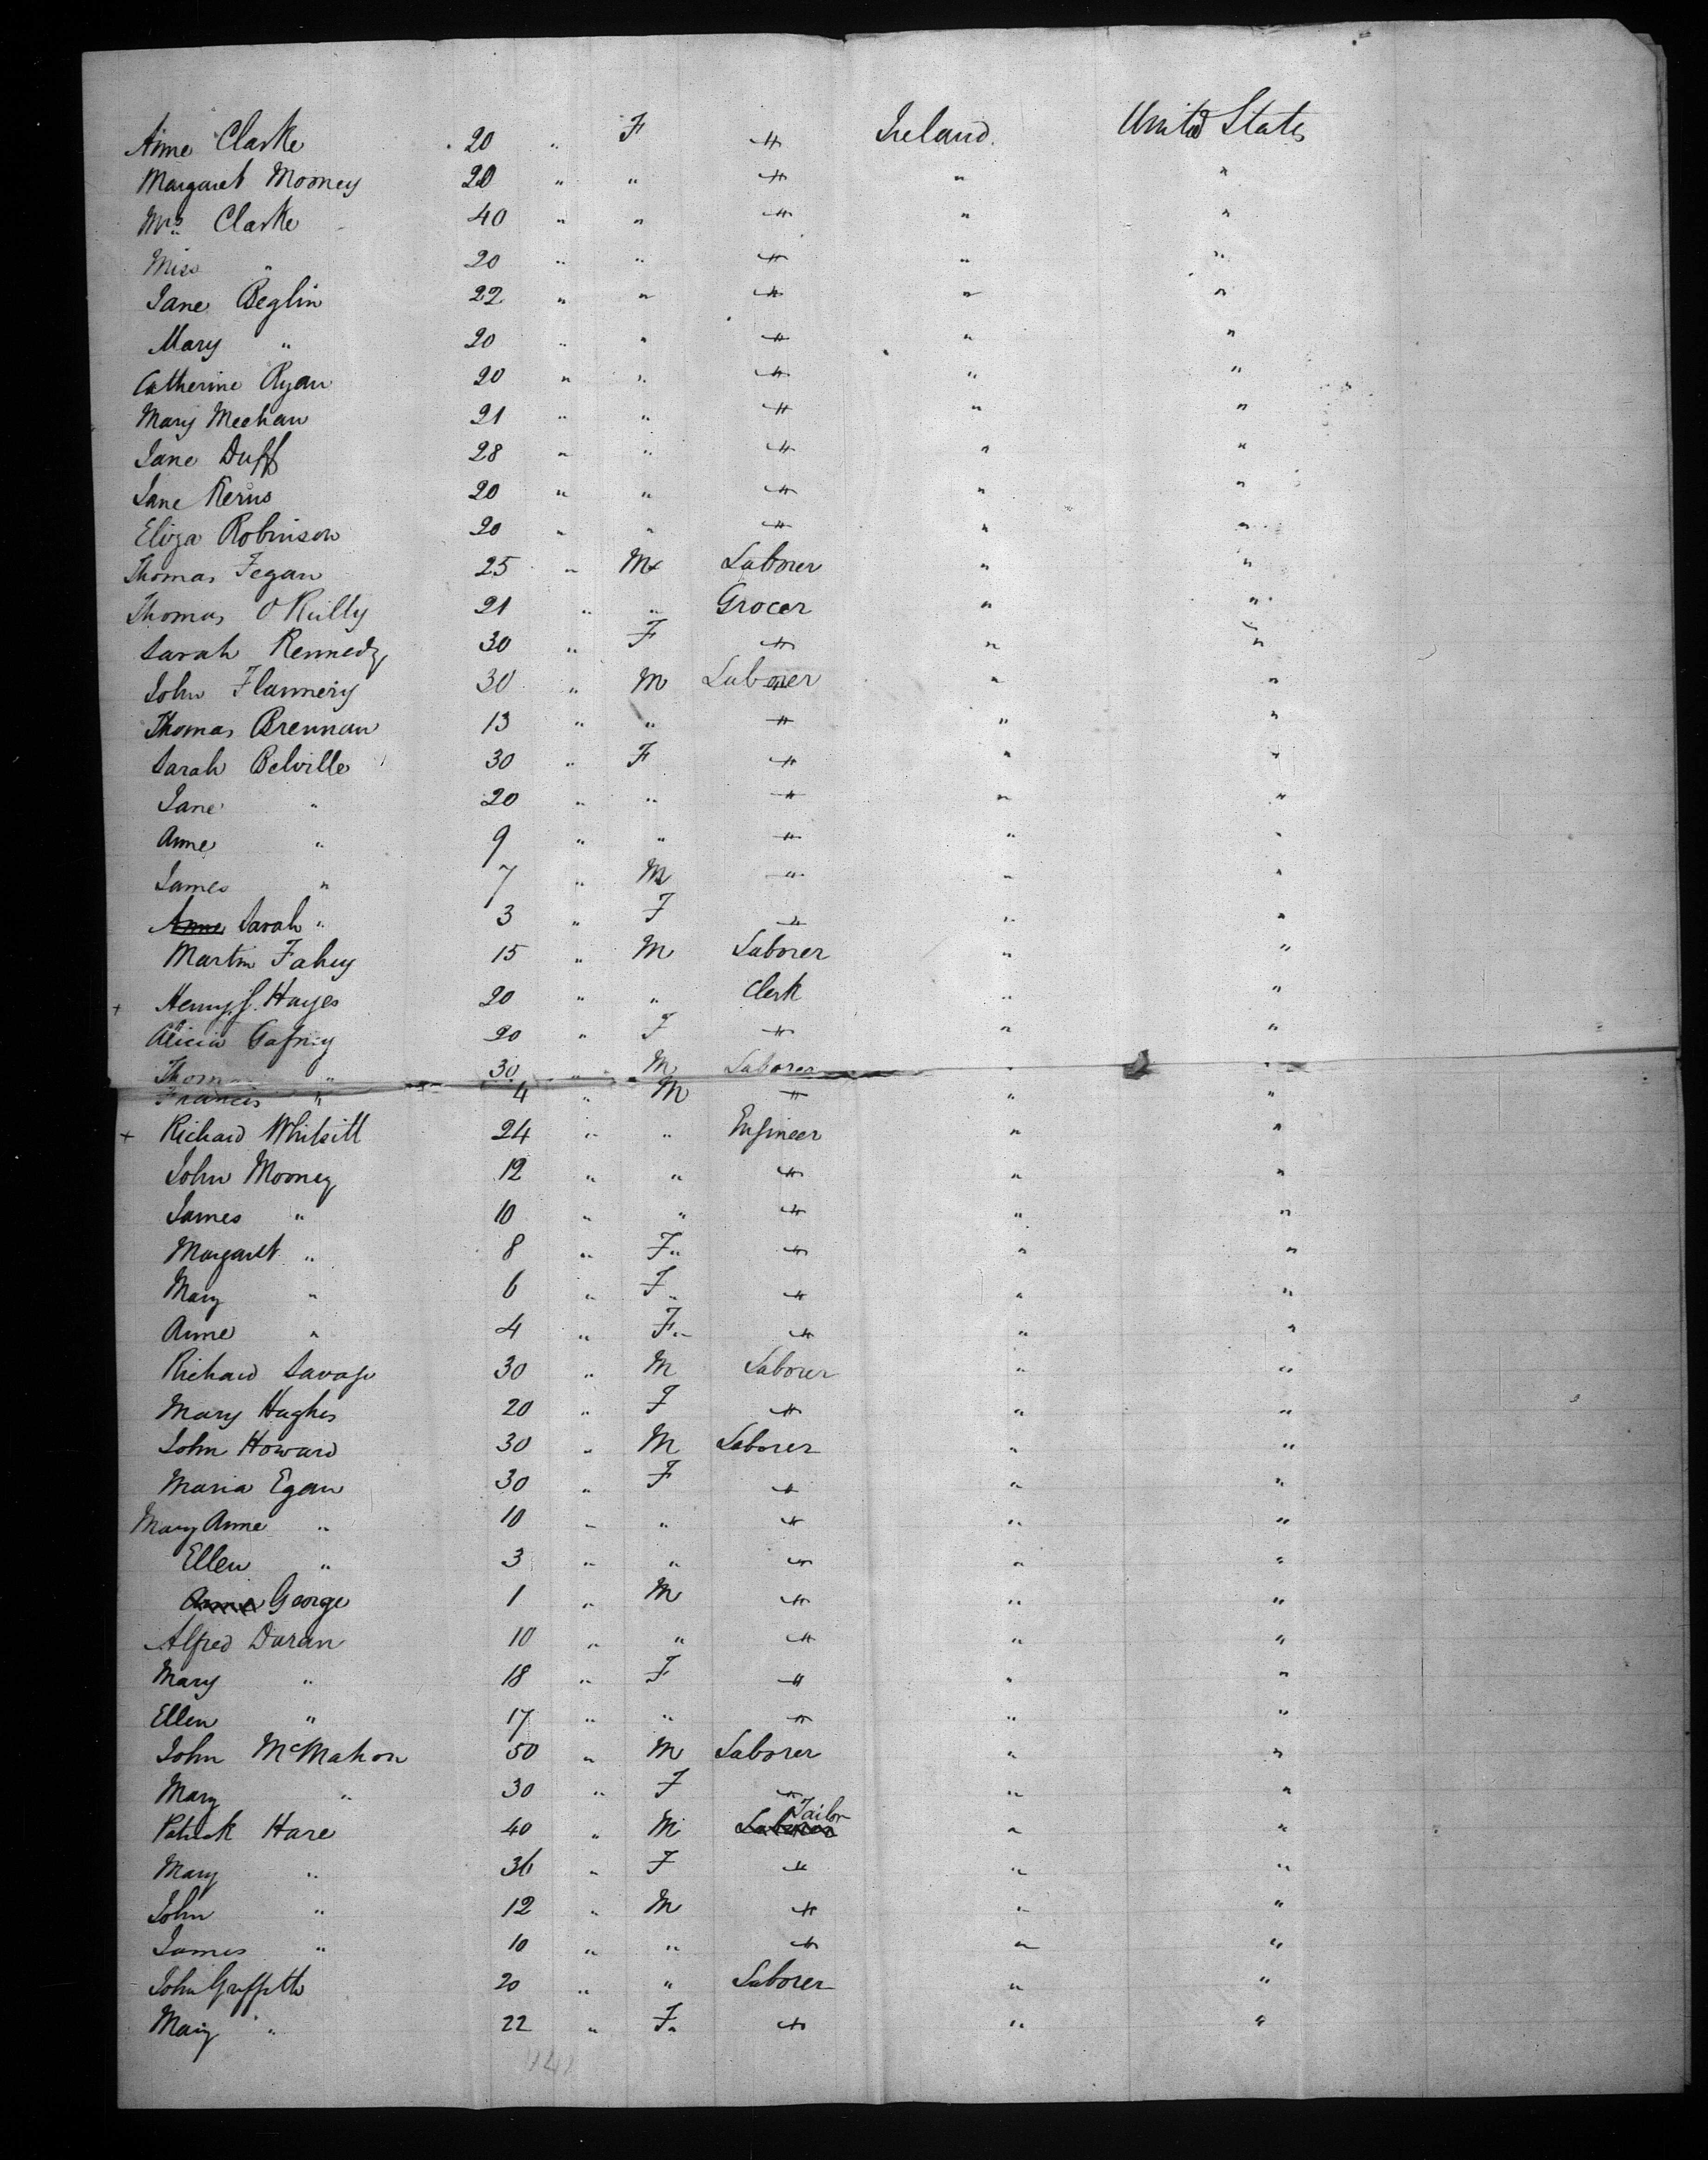 Anne Clarke 20 " F " Ireland. United States
Margaret Mooney 20 " " " " "
Mrs. Clarke 40 " " " " "
Miss " 20 " " " " "
Jane Beglin 22 " " " " "
Mary " 20 " " " " "
Catherine Ryan 20 " " " " "
Mary Meehan 21 " " " " "
Jane Duff 28 " " " " "
Jane Kerns 20 " " " " "
Eliza Robinson 20 " " " " "
Thomas Fegan 25 " M Laborer " "
Thomas O'Reilly 21 " " Grocer " "
Sarah Kennedy 30 " F " " "
John Flannery 30 " M Laborer " "
Thomas Brennan 13 " " " " "
Sarah Belville 30 " F " " "
Jane " 20 " " " " "
Anne " 9 " " " " "
James " 7 " M " " "
Anne Sarah " 3 " F " " "
Martin Fahey 15 " M Laborer " "
+ Henry J. Hayes 20 " " Clerk " "
Alicia Gafney 20 " F " " "
Thom " 30 " M Laborer " "
Francis " 4 " M " " "
+ Richard Whitsitt 24 " " Engineer " "
John Mooney 12 " " " " "
James " 10 " " " " "
Margaret " 8 " F " " "
Mary " 6 " F " " "
Anne " 4 " F " " "
Richard Savage 30 " M Laborer " "
Mary Hughes 20 " F " " "
John Howard 30 " M Laborer " "
Maria Egan 30 " F " " "
Mary Anne " 10 " " " " "
Ellen " 3 " " " " "
Anne George 1 " M " " "
Alfred Doran 10 " " " " "
Mary " 18 " F " " "
Ellen " 17 " " " " "
John McMahon 50 " M Laborer " "
Mary " 30 " F " " "
Patrick Hare 40 " M Laborer Tailor " "
Mary " 36 " F " " "
John " 12 " M " " "
James " 10 " " " " "
John Griffith 20 " " Laborer " "
Mary " 22 " F " " "